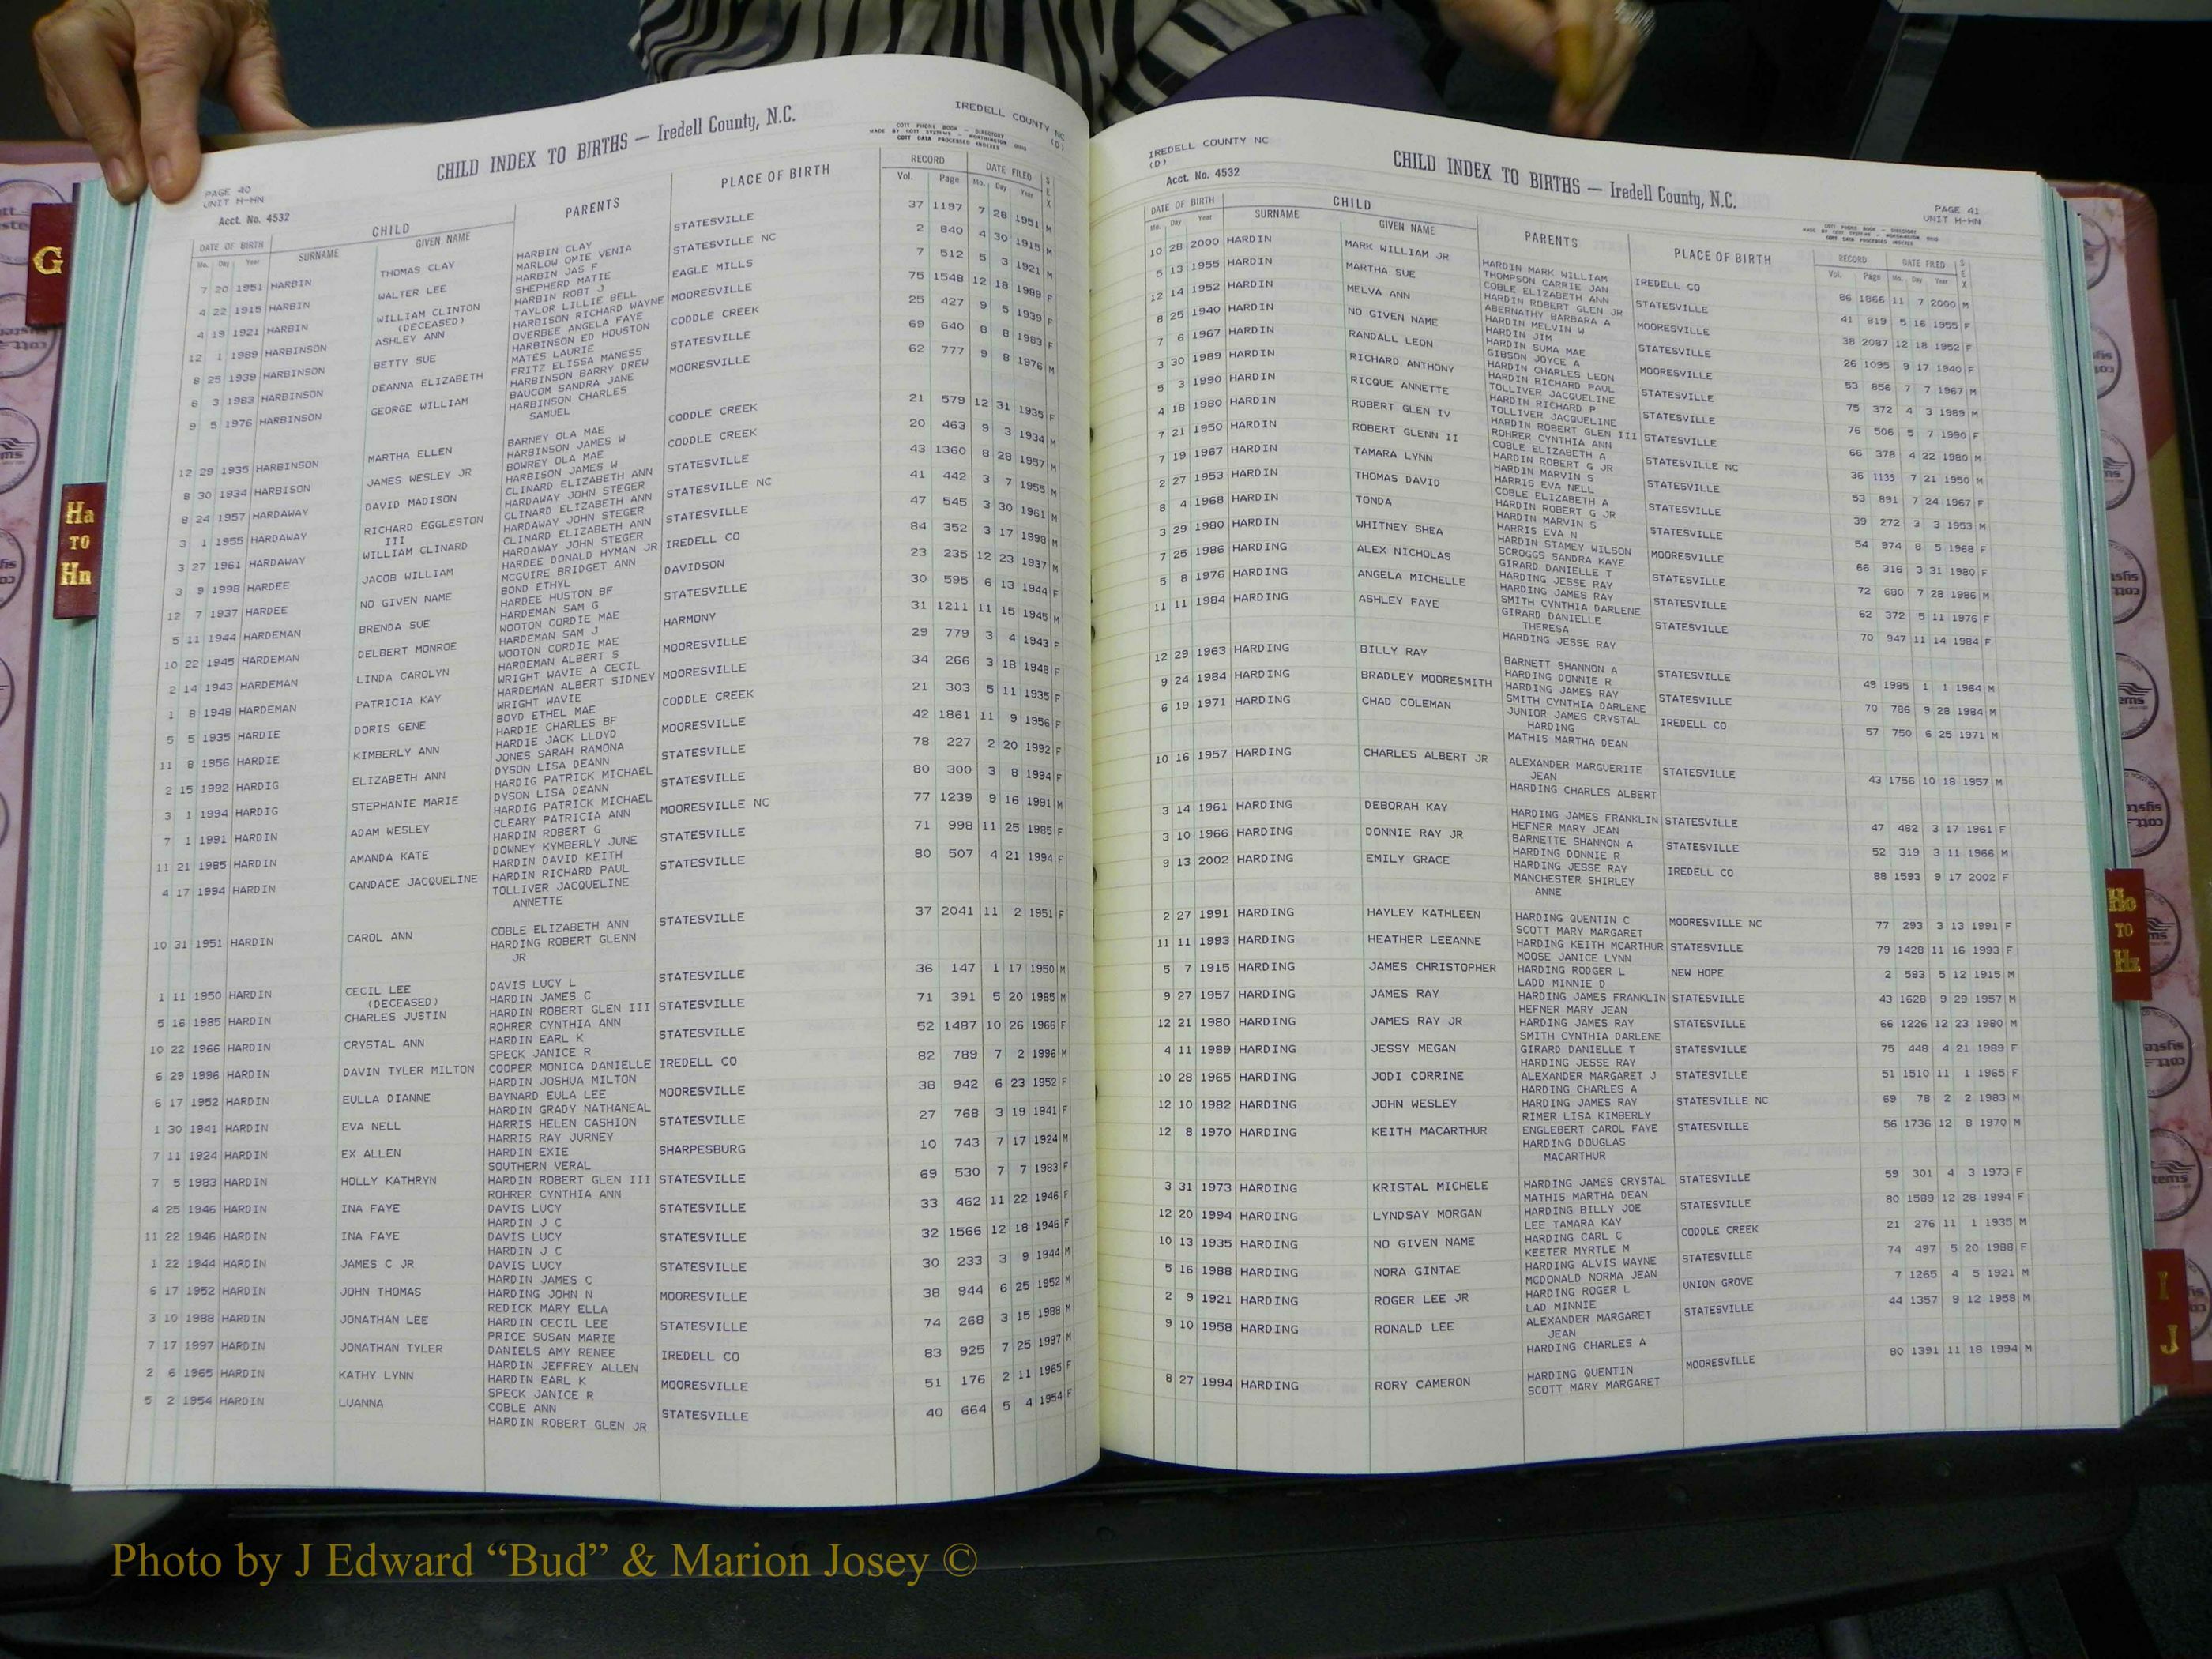 CHILD INDEX TO BIRTHS — Iredell County, N.C.
IREDELL COUNTY NC
(D)
PAGE 40
UNIT H-HN
Acct. No. 4532
COTT PHONE BOOK — DIRECTORY
MADE BY COTT SYSTEMS — WORTHINGTON OHIO
COTT DATA PROCESSED INDEXES
DATE OF BIRTH CHILD PARENTS PLACE OF BIRTH RECORD DATE FILED SEX
Mo. Day Year SURNAME GIVEN NAME Vol. Page Mo. Day Year
7 20 1951 HARBIN THOMAS CLAY HARBIN CLAY STATESVILLE 37 1197 7 28 1951 M
MARLOW OMIE VENIA
4 22 1915 HARBIN WALTER LEE HARBIN JAS F STATESVILLE NC 2 840 4 30 1915 M
SHEPHERD MATIE
4 19 1921 HARBIN WILLIAM CLINTON HARBIN ROBT J EAGLE MILLS 7 512 5 3 1921 M
(DECEASED) TAYLOR LILLIE BELL
12 1 1989 HARBINSON ASHLEY ANN HARBISON RICHARD WAYNE MOORESVILLE 75 1548 12 18 1989 F
OVERBEE ANGELA FAYE
8 25 1939 HARBINSON BETTY SUE HARBINSON ED HOUSTON CODDLE CREEK 25 427 9 5 1939 F
MATES LAURIE
8 3 1983 HARBINSON DEANNA ELIZABETH FRITZ ELISSA MANESS STATESVILLE 69 640 8 8 1983 F
HARBINSON BARRY DREW
9 5 1976 HARBINSON GEORGE WILLIAM BAUCOM SANDRA JANE MOORESVILLE 62 777 9 8 1976 M
HARBINSON CHARLES
SAMUEL
12 29 1935 HARBINSON MARTHA ELLEN BARNEY OLA MAE CODDLE CREEK 21 579 12 31 1935 F
HARBINSON JAMES W
8 30 1934 HARBISON JAMES WESLEY JR BOWREY OLA MAE CODDLE CREEK 20 463 9 3 1934 M
HARBISON JAMES W
8 24 1957 HARDAWAY DAVID MADISON CLINARD ELIZABETH ANN STATESVILLE 43 1360 8 28 1957 M
HARDAWAY JOHN STEGER
3 1 1955 HARDAWAY RICHARD EGGLESTON CLINARD ELIZABETH ANN STATESVILLE NC 41 442 3 7 1955 M
III HARDAWAY JOHN STEGER
3 27 1961 HARDAWAY WILLIAM CLINARD CLINARD ELIZABETH ANN STATESVILLE 47 545 3 30 1961 M
HARDAWAY JOHN STEGER
3 9 1998 HARDEE JACOB WILLIAM HARDEE DONALD HYMAN JR IREDELL CO 84 352 3 17 1998 M
MCGUIRE BRIDGET ANN
12 7 1937 HARDEE NO GIVEN NAME BOND ETHYL DAVIDSON 23 235 12 23 1937 M
HARDEE HUSTON BF
5 11 1944 HARDEMAN BRENDA SUE HARDEMAN SAM G STATESVILLE 30 595 6 13 1944 F
WOOTON CORDIE MAE
10 22 1945 HARDEMAN DELBERT MONROE HARDEMAN SAM J HARMONY 31 1211 11 15 1945 M
WOOTON CORDIE MAE
2 14 1943 HARDEMAN LINDA CAROLYN HARDEMAN ALBERT S MOORESVILLE 29 779 3 4 1943 F
WRIGHT WAVIE A CECIL
1 8 1948 HARDEMAN PATRICIA KAY HARDEMAN ALBERT SIDNEY MOORESVILLE 34 266 3 18 1948 F
WRIGHT WAVIE
5 5 1935 HARDIE DORIS GENE BOYD ETHEL MAE CODDLE CREEK 21 303 5 11 1935 F
HARDIE CHARLES BF
11 8 1956 HARDIE KIMBERLY ANN HARDIE JACK LLOYD MOORESVILLE 42 1861 11 9 1956 F
JONES SARAH RAMONA
2 15 1992 HARDIG ELIZABETH ANN DYSON LISA DEANN STATESVILLE 78 227 2 20 1992 F
HARDIG PATRICK MICHAEL
3 1 1994 HARDIG STEPHANIE MARIE DYSON LISA DEANN STATESVILLE 80 300 3 8 1994 F
HARDIG PATRICK MICHAEL
7 1 1991 HARDIN ADAM WESLEY CLEARY PATRICIA ANN MOORESVILLE NC 77 1239 9 16 1991 M
HARDIN ROBERT G
11 21 1985 HARDIN AMANDA KATE DOWNEY KYMBERLY JUNE STATESVILLE 71 998 11 25 1985 F
HARDIN DAVID KEITH
4 17 1994 HARDIN CANDACE JACQUELINE HARDIN RICHARD PAUL STATESVILLE 80 507 4 21 1994 F
TOLLIVER JACQUELINE
ANNETTE
10 31 1951 HARDIN CAROL ANN COBLE ELIZABETH ANN STATESVILLE 37 2041 11 2 1951 F
HARDING ROBERT GLENN
JR
1 11 1950 HARDIN CECIL LEE DAVIS LUCY L STATESVILLE 36 147 1 17 1950 M
(DECEASED) HARDIN JAMES C
5 16 1985 HARDIN CHARLES JUSTIN HARDIN ROBERT GLEN III STATESVILLE 71 391 5 20 1985 M
ROHRER CYNTHIA ANN
10 22 1966 HARDIN CRYSTAL ANN HARDIN EARL K STATESVILLE 52 1487 10 26 1966 F
SPECK JANICE R
6 29 1996 HARDIN DAVIN TYLER MILTON COOPER MONICA DANIELLE IREDELL CO 82 789 7 2 1996 M
HARDIN JOSHUA MILTON
6 17 1952 HARDIN EULLA DIANNE BAYNARD EULA LEE MOORESVILLE 38 942 6 23 1952 F
HARDIN GRADY NATHANEAL
1 30 1941 HARDIN EVA NELL HARRIS HELEN CASHION STATESVILLE 27 768 3 19 1941 F
HARRIS RAY JURNEY
7 11 1924 HARDIN EX ALLEN HARDIN EXIE SHARPESBURG 10 743 7 17 1924 M
SOUTHERN VERAL
7 5 1983 HARDIN HOLLY KATHRYN HARDIN ROBERT GLEN III STATESVILLE 69 530 7 7 1983 F
ROHRER CYNTHIA ANN
4 25 1946 HARDIN INA FAYE DAVIS LUCY STATESVILLE 33 462 11 22 1946 F
HARDIN J C
11 22 1946 HARDIN INA FAYE DAVIS LUCY STATESVILLE 32 1566 12 18 1946 F
HARDIN J C
1 22 1944 HARDIN JAMES C JR DAVIS LUCY STATESVILLE 30 233 3 9 1944 M
HARDIN JAMES C
6 17 1952 HARDIN JOHN THOMAS HARDING JOHN N MOORESVILLE 38 944 6 25 1952 M
REDICK MARY ELLA
3 10 1988 HARDIN JONATHAN LEE HARDIN CECIL LEE STATESVILLE 74 268 3 15 1988 M
PRICE SUSAN MARIE
7 17 1997 HARDIN JONATHAN TYLER DANIELS AMY RENEE IREDELL CO 83 925 7 25 1997 M
HARDIN JEFFREY ALLEN
2 6 1965 HARDIN KATHY LYNN HARDIN EARL K MOORESVILLE 51 176 2 11 1965 F
SPECK JANICE R
5 2 1954 HARDIN LUANNA COBLE ANN STATESVILLE 40 664 5 4 1954 F
HARDIN ROBERT GLEN JR
IREDELL COUNTY NC
(D)
Acct. No. 4532
CHILD INDEX TO BIRTHS — Iredell County, N.C.
PAGE 41
UNIT H-HN
COTT PHONE BOOK — DIRECTORY
MADE BY COTT SYSTEMS — WORTHINGTON OHIO
COTT DATA PROCESSED INDEXES
DATE OF BIRTH CHILD PARENTS PLACE OF BIRTH RECORD DATE FILED SEX
Mo. Day Year SURNAME GIVEN NAME Vol. Page Mo. Day Year
10 28 2000 HARDIN MARK WILLIAM JR HARDIN MARK WILLIAM IREDELL CO 86 1866 11 7 2000 M
THOMPSON CARRIE JAN
5 13 1955 HARDIN MARTHA SUE COBLE ELIZABETH ANN STATESVILLE 41 819 5 16 1955 F
HARDIN ROBERT GLEN JR
12 14 1952 HARDIN MELVA ANN ABERNATHY BARBARA A MOORESVILLE 38 2087 12 18 1952 F
HARDIN MELVIN W
8 25 1940 HARDIN NO GIVEN NAME HARDIN JIM STATESVILLE 26 1095 9 17 1940 F
HARDIN SUMA MAE
7 6 1967 HARDIN RANDALL LEON GIBSON JOYCE A MOORESVILLE 53 856 7 7 1967 M
HARDIN CHARLES LEON
3 30 1989 HARDIN RICHARD ANTHONY HARDIN RICHARD PAUL STATESVILLE 75 372 4 3 1989 M
TOLLIVER JACQUELINE
5 3 1990 HARDIN RICQUE ANNETTE HARDIN RICHARD P STATESVILLE 76 506 5 7 1990 F
TOLLIVER JACQUELINE
4 18 1980 HARDIN ROBERT GLEN IV HARDIN ROBERT GLEN III STATESVILLE 66 378 4 22 1980 M
ROHRER CYNTHIA ANN
7 21 1950 HARDIN ROBERT GLENN II COBLE ELIZABETH A STATESVILLE NC 36 1135 7 21 1950 M
HARDIN ROBERT G JR
7 19 1967 HARDIN TAMARA LYNN HARDIN MARVIN S STATESVILLE 53 891 7 24 1967 F
HARRIS EVA NELL
2 27 1953 HARDIN THOMAS DAVID COBLE ELIZABETH A STATESVILLE 39 272 3 3 1953 M
HARDIN ROBERT G JR
8 4 1968 HARDIN TONDA HARDIN MARVIN S STATESVILLE 54 974 8 5 1968 F
HARRIS EVA N
3 29 1980 HARDIN WHITNEY SHEA HARDIN STAMEY WILSON MOORESVILLE 66 316 3 31 1980 F
SCROGGS SANDRA KAYE
7 25 1986 HARDING ALEX NICHOLAS GIRARD DANIELLE T STATESVILLE 72 680 7 28 1986 M
HARDING JESSE RAY
5 8 1976 HARDING ANGELA MICHELLE HARDING JAMES RAY STATESVILLE 62 372 5 11 1976 F
SMITH CYNTHIA DARLENE
11 11 1984 HARDING ASHLEY FAYE GIRARD DANIELLE STATESVILLE 70 947 11 14 1984 F
THERESA
HARDING JESSE RAY
12 29 1963 HARDING BILLY RAY BARNETT SHANNON A STATESVILLE 49 1985 1 1 1964 M
HARDING DONNIE R
9 24 1984 HARDING BRADLEY MOORESMITH HARDING JAMES RAY STATESVILLE 70 786 9 28 1984 M
SMITH CYNTHIA DARLENE
6 19 1971 HARDING CHAD COLEMAN JUNIOR JAMES CRYSTAL IREDELL CO 57 750 6 25 1971 M
HARDING
MATHIS MARTHA DEAN
10 16 1957 HARDING CHARLES ALBERT JR ALEXANDER MARGUERITE STATESVILLE 43 1756 10 18 1957 M
JEAN
HARDING CHARLES ALBERT
3 14 1961 HARDING DEBORAH KAY HARDING JAMES FRANKLIN STATESVILLE 47 482 3 17 1961 F
HEFNER MARY JEAN
3 10 1966 HARDING DONNIE RAY JR BARNETTE SHANNON A STATESVILLE 52 319 3 11 1966 M
HARDING DONNIE R
9 13 2002 HARDING EMILY GRACE HARDING JESSE RAY IREDELL CO 88 1593 9 17 2002 F
MANCHESTER SHIRLEY
ANNE
2 27 1991 HARDING HAYLEY KATHLEEN HARDING QUENTIN C MOORESVILLE NC 77 293 3 13 1991 F
SCOTT MARY MARGARET
11 11 1993 HARDING HEATHER LEEANNE HARDING KEITH MCARTHUR STATESVILLE 79 1428 11 16 1993 F
MOOSE JANICE LYNN
5 7 1915 HARDING JAMES CHRISTOPHER HARDING RODGER L NEW HOPE 2 583 5 12 1915 M
LADD MINNIE D
9 27 1957 HARDING JAMES RAY HARDING JAMES FRANKLIN STATESVILLE 43 1628 9 29 1957 M
HEFNER MARY JEAN
12 21 1980 HARDING JAMES RAY JR HARDING JAMES RAY STATESVILLE 66 1226 12 23 1980 M
SMITH CYNTHIA DARLENE
4 11 1989 HARDING JESSY MEGAN GIRARD DANIELLE T STATESVILLE 75 448 4 21 1989 F
HARDING JESSE RAY
10 28 1965 HARDING JODI CORRINE ALEXANDER MARGARET J STATESVILLE 51 1510 11 1 1965 F
HARDING CHARLES A
12 10 1982 HARDING JOHN WESLEY HARDING JAMES RAY STATESVILLE NC 69 78 2 2 1983 M
RIMER LISA KIMBERLY
12 8 1970 HARDING KEITH MACARTHUR ENGLEBERT CAROL FAYE STATESVILLE 56 1736 12 8 1970 M
HARDING DOUGLAS
MACARTHUR
3 31 1973 HARDING KRISTAL MICHELE HARDING JAMES CRYSTAL STATESVILLE 59 301 4 3 1973 F
MATHIS MARTHA DEAN
12 20 1994 HARDING LYNDSAY MORGAN HARDING BILLY JOE STATESVILLE 80 1589 12 28 1994 F
LEE TAMARA KAY
10 13 1935 HARDING NO GIVEN NAME HARDING CARL C CODDLE CREEK 21 276 11 1 1935 M
KEETER MYRTLE M
5 16 1988 HARDING NORA GINTAE HARDING ALVIS WAYNE STATESVILLE 74 497 5 20 1988 F
MCDONALD NORMA JEAN
2 9 1921 HARDING ROGER LEE JR HARDING ROGER L UNION GROVE 7 1265 4 5 1921 M
LAD MINNIE
9 10 1958 HARDING RONALD LEE ALEXANDER MARGARET STATESVILLE 44 1357 9 12 1958 M
JEAN
HARDING CHARLES A
8 27 1994 HARDING RORY CAMERON HARDING QUENTIN MOORESVILLE 80 1391 11 18 1994 M
SCOTT MARY MARGARET
G
Ha
TO
Hn
Ho
TO
Hz
I
J
Photo by J Edward “Bud” & Marion Josey ©